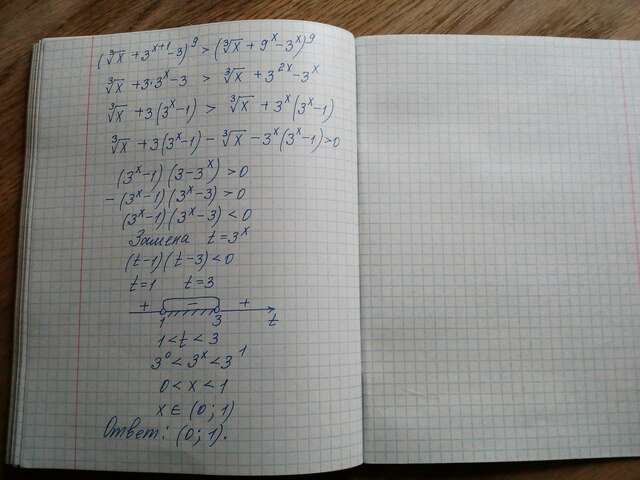 (∛x + 3^(x+1) - 3)^9 > (∛x + 9^x - 3^x)^9
∛x + 3·3^x - 3 > ∛x + 3^(2x) - 3^x
∛x + 3(3^x - 1) > ∛x + 3^x(3^x - 1)
∛x + 3(3^x - 1) - ∛x - 3^x(3^x - 1) > 0
(3^x - 1)(3 - 3^x) > 0
-(3^x - 1)(3^x - 3) > 0
(3^x - 1)(3^x - 3) < 0
Замена t = 3^x
(t - 1)(t - 3) < 0
t = 1 t = 3
+ - +
1 3 t
1 < t < 3
3^0 < 3^x < 3^1
0 < x < 1
x ∈ (0; 1)
Ответ: (0; 1).